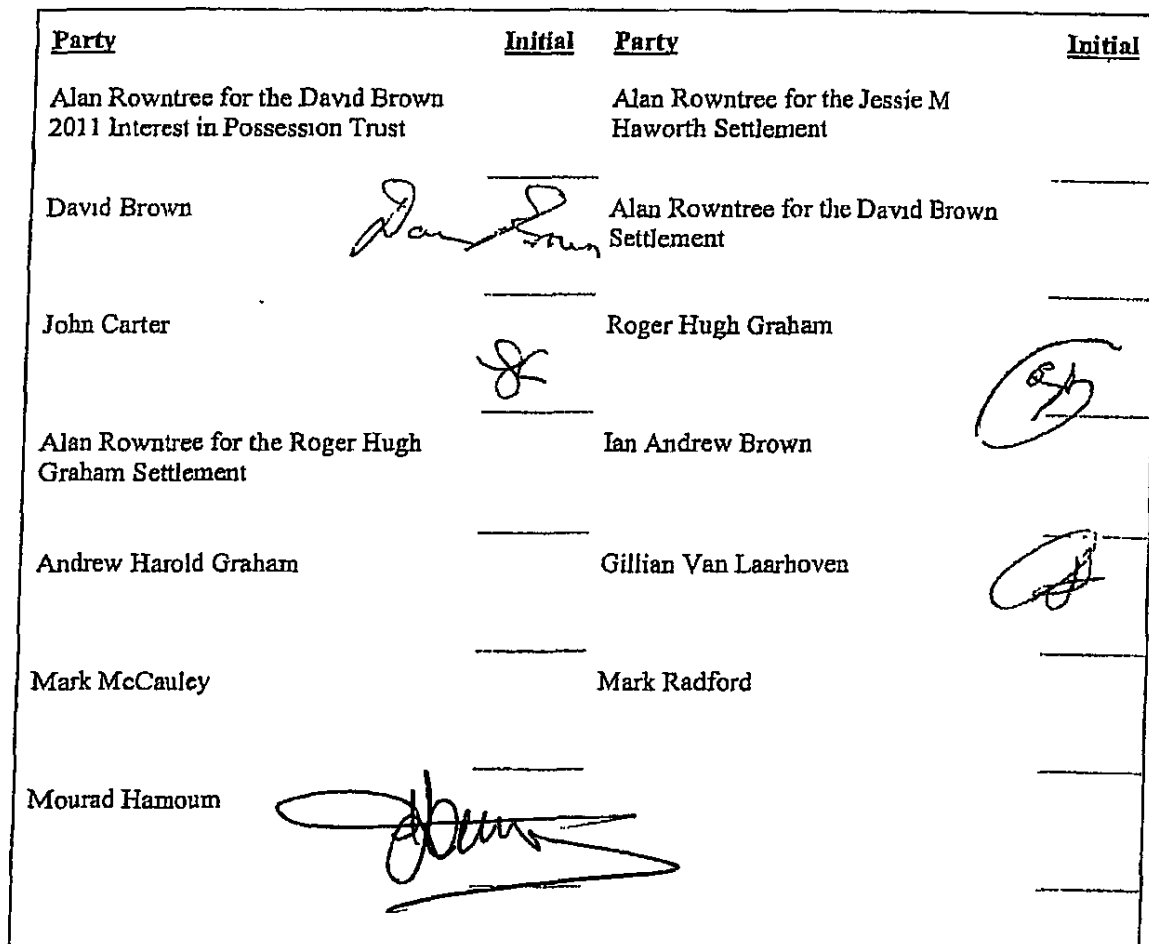 Party Initial Party Initial
Alan Rowntree for the David Brown
2011 Interest in Possession Trust
Alan Rowntree for the Jessie M
Haworth Settlement
David Brown
David Brown
Alan Rowntree for the David Brown
Settlement
John Carter
Roger Hugh Graham
Alan Rowntree for the Roger Hugh
Graham Settlement
Ian Andrew Brown
Andrew Harold Graham
Gillian Van Laarhoven
Mark McCauley
Mark Radford
Mourad Hamoum